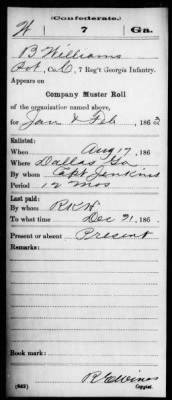 (Confederate.)
W 7 Ga.
B Williams
Pvt, Co. C, 7 Reg't Georgia Infantry.
Appears on
Company Muster Roll
of the organization named above,
for Jan & Feb, 186
Enlisted:
When Aug 17, 186
Where Dallas Ga
By whom Capt Jenkins
Period 12 mos
Last paid:
By whom
To what time Dec 31, 186
Present or absent Present
Remarks:
Book mark:
(642) Copyist.